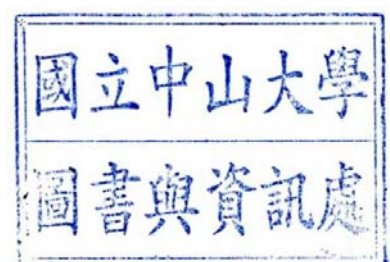 國立中山大學
圖書與資訊處